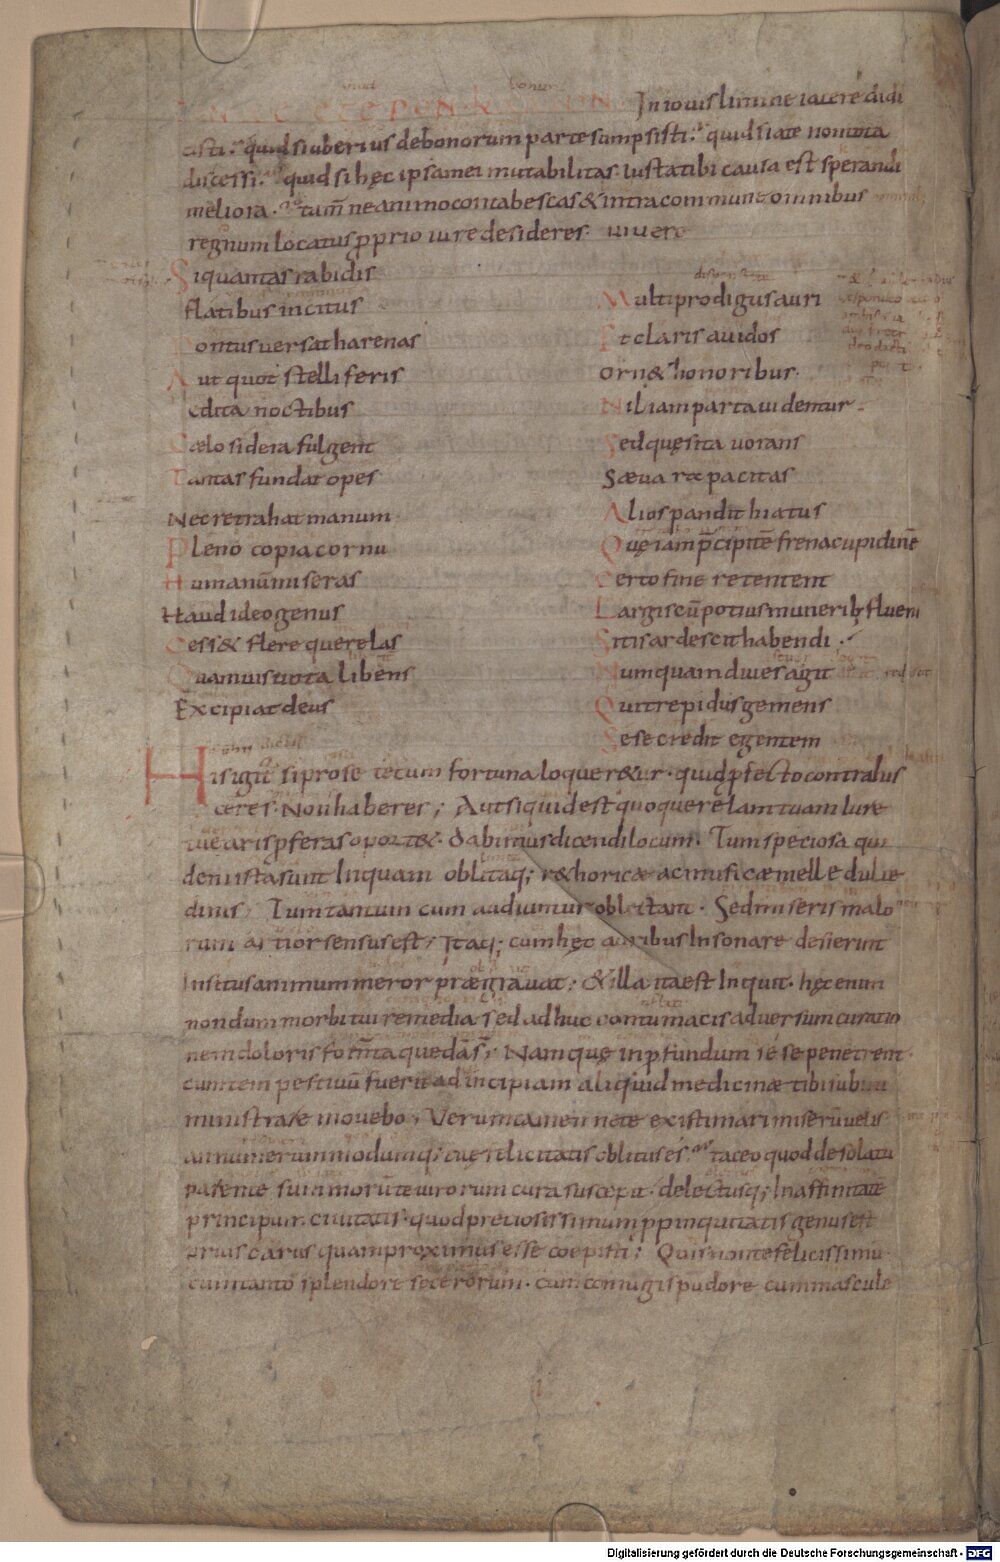 In iouis limine iacere didi
cisti. quid si uberius de bonorum parte sumpsisti. quid si a te non tota
discessi. quid si hęc ipsa mei mutabilitas iusta tibi causa est sperandi
meliora. tam̅ ne animo contabescas & intra commune omnibus
regnum locatus pprio iure desideres uiuere
Si quantas rabidis
flatibus incitus
Pontus uersat harenas
Aut quot stelliferis
edita noctibus
Cælo sidera fulgent
Tantas fundat opes
Nec retrahat manum
Pleno copia cornu
Humanum̅ miseras
Haud ideo genus
Cess& flere querelas
Quamuis uota libens
Excipiat deus
Multi prodigus auri
Et claris auidos
Orn& honoribus.
Nil iam parta uidentur.
Sed quęsita uorans
Sæua rapacitas
Alios pandit hiatus
Quę iam p̅cipite̅ frena cupidine̅
Certo fine retentent
Largis cu̅ potius muneribꝫ fluens
Sitis ardescit habendi.
Numquam diues agit
Qui trepidus gemens
Sese credit egentem
His igit̅ si pro se tecum fortuna loquer&ur. quid pfecto contra his
ceres. Non haberes; Aut si quid est quo querelam tuam iure
tuearis pferas oport&. dabimus dicendi locum. Tum speciosa qui
dem ista sunt Inquam oblitaq; r&horicæ ac musicæ melle dulce
dinis Tum tantum cum audiuntur oblectant. Sed miseris malo
rum altior sensus est; Itaq; cum hęc auribus Insonare desierint
Insitus animum meror prægrauat. & illa ita est Inquit. hęc enim
nondum morbi tui remedia sed adhuc contumacis aduersum curatio
nem doloris fom̅ta quedā s̅; Nam quę in pfundum se se penetrent
cum tempestiuu̅ fuerit ad incipiam aliquid medicinæ tibi iubum
ministrare mouebo. Verumtamen ne te existimari miseru̅ uelis
an numerum modumq; tuę felicitatis oblitus es. taceo quod desolatu
parente summoru̅ te uirorum cura suscepit. delectusq; In affinitate
principum ciuitatis. quod preciosissimum ppinquitatis genus est
prius carus quam proximus esse coepisti; Quis non te felicissimu
cum tanto splendore socerorum. cum coniugis pudore cum mascule
Digitalisierung gefördert durch die Deutsche Forschungsgemeinschaft - DFG